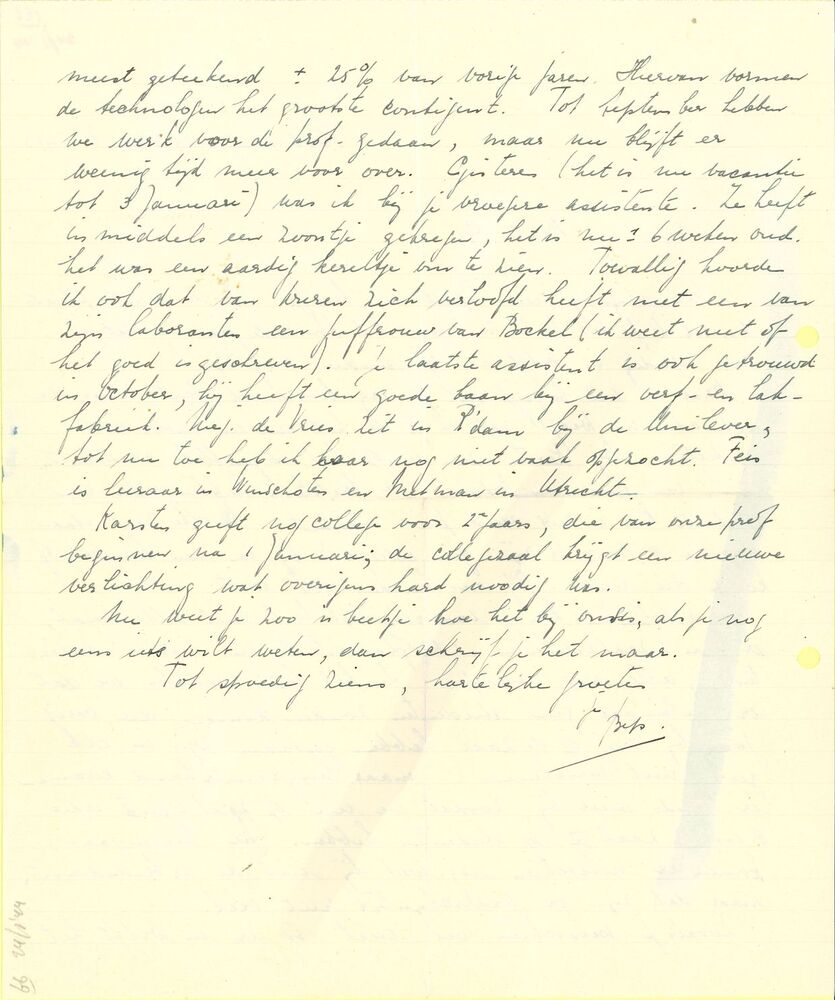 meest geteekend ± 25% van vorige jaren. Hiervan vormen
de technologen het grootste contigent. Tot September hebben
we werk voor de prof. gedaan, maar nu blijft er
weinig tijd meer voor over. Gisteren (het is nu vacantie
tot 3 Januari) was ik bij je vroegere assistente. Ze heeft
inmiddels een zoontje gekregen, het is nu ± 6 weken oud.
het was een aardig kereltje om te zien. Toevallig hoorde
ik ook dat van zich verloofd heeft met een van
zijn laboranten een juffrouw van Bockel (ik weet niet of
het goed is geschreven). Je laatste assistent is ook getrouwd
in October, hij heeft een goede baan bij een verf- en lak-
fabriek. Mej. de Vries zit in R'dam bij de Unilever,
tot nu toe heb ik haar nog niet vaak opgezocht. Feis
is leeraar in Winschoten en Metman in Utrecht.
Karsten geeft nog college voor 2e jaars, die van onze prof
beginnen na 1 Januari; de collegezaal krijgt een nieuwe
verlichting wat overigens hard noodig was.
Nu weet je zoo 'n beetje hoe het bij ons is, als je nog
eens iets wilt weten, dan schrijf je het maar.
Tot spoedig ziens, hartelijke groeten
je Bep.
24/1 44